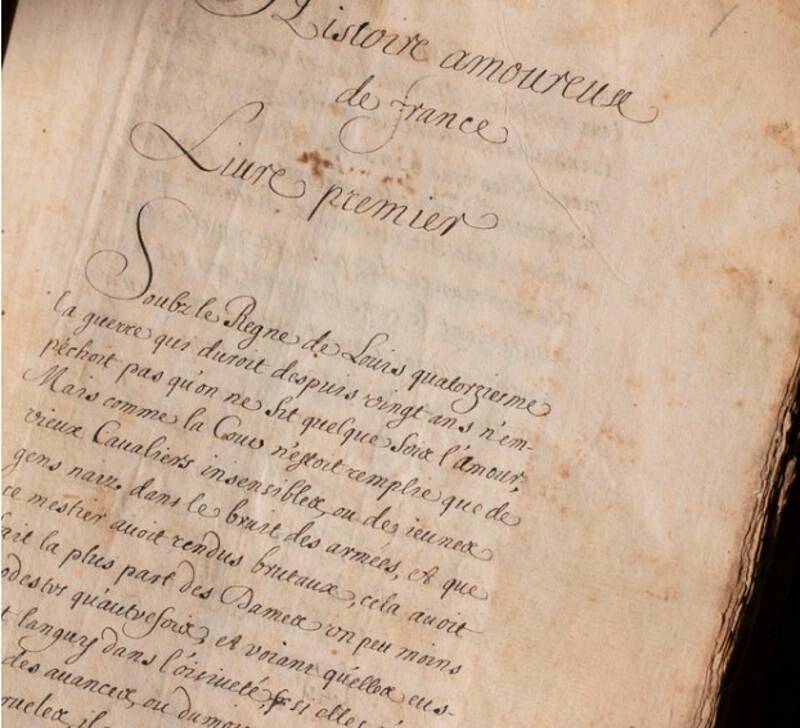 Histoire amoureuse
de france
Liure premier
Soubz le Regne de Louis quatorzieme
la guerre qui duroit despuis vingt ans n'em-
pechoit pas qu'on ne fit quelque foix l'amour,
Mais comme la Cour n'estoit remplie que de
vieux Caualiers insensiblex, ou de jeunex
gens naiz dans le bruit des armées, et que
ce mestier auoit rendus brutaux, cela auoit
fait la plus part des Damex vn peu moins
modestes qu'autrefoix, et voiant qu'ellex eus-
t languy dans l'oisiueté, si elles
des auancex, ou du mo
ruelex, il